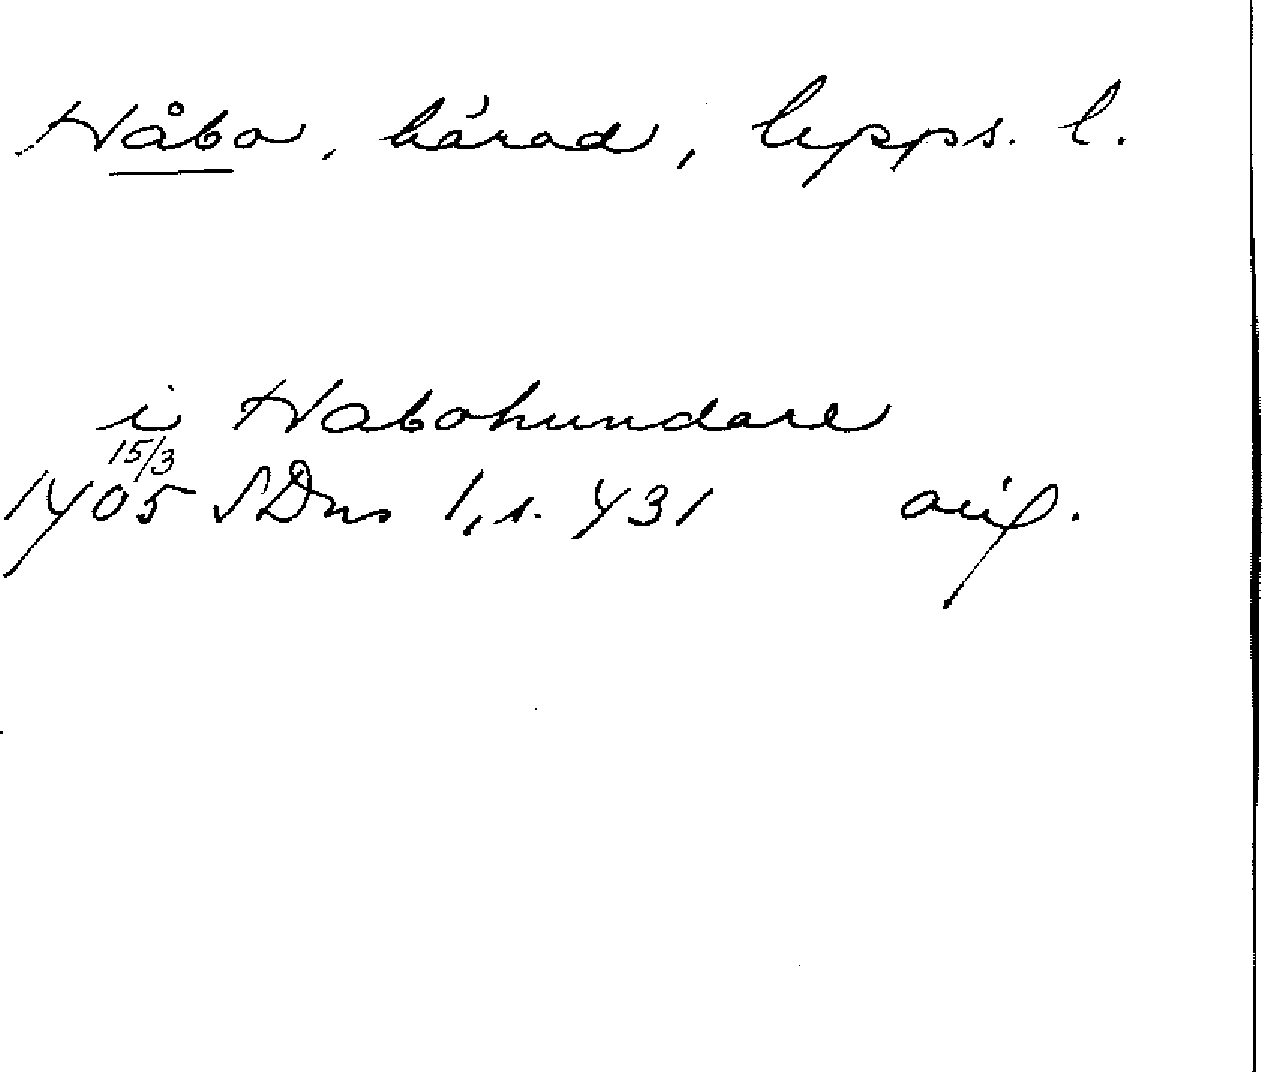 Håbo, härad, Upps. l.
i Habohundare
15/3
1405 SDns 1, s. 431 avs.